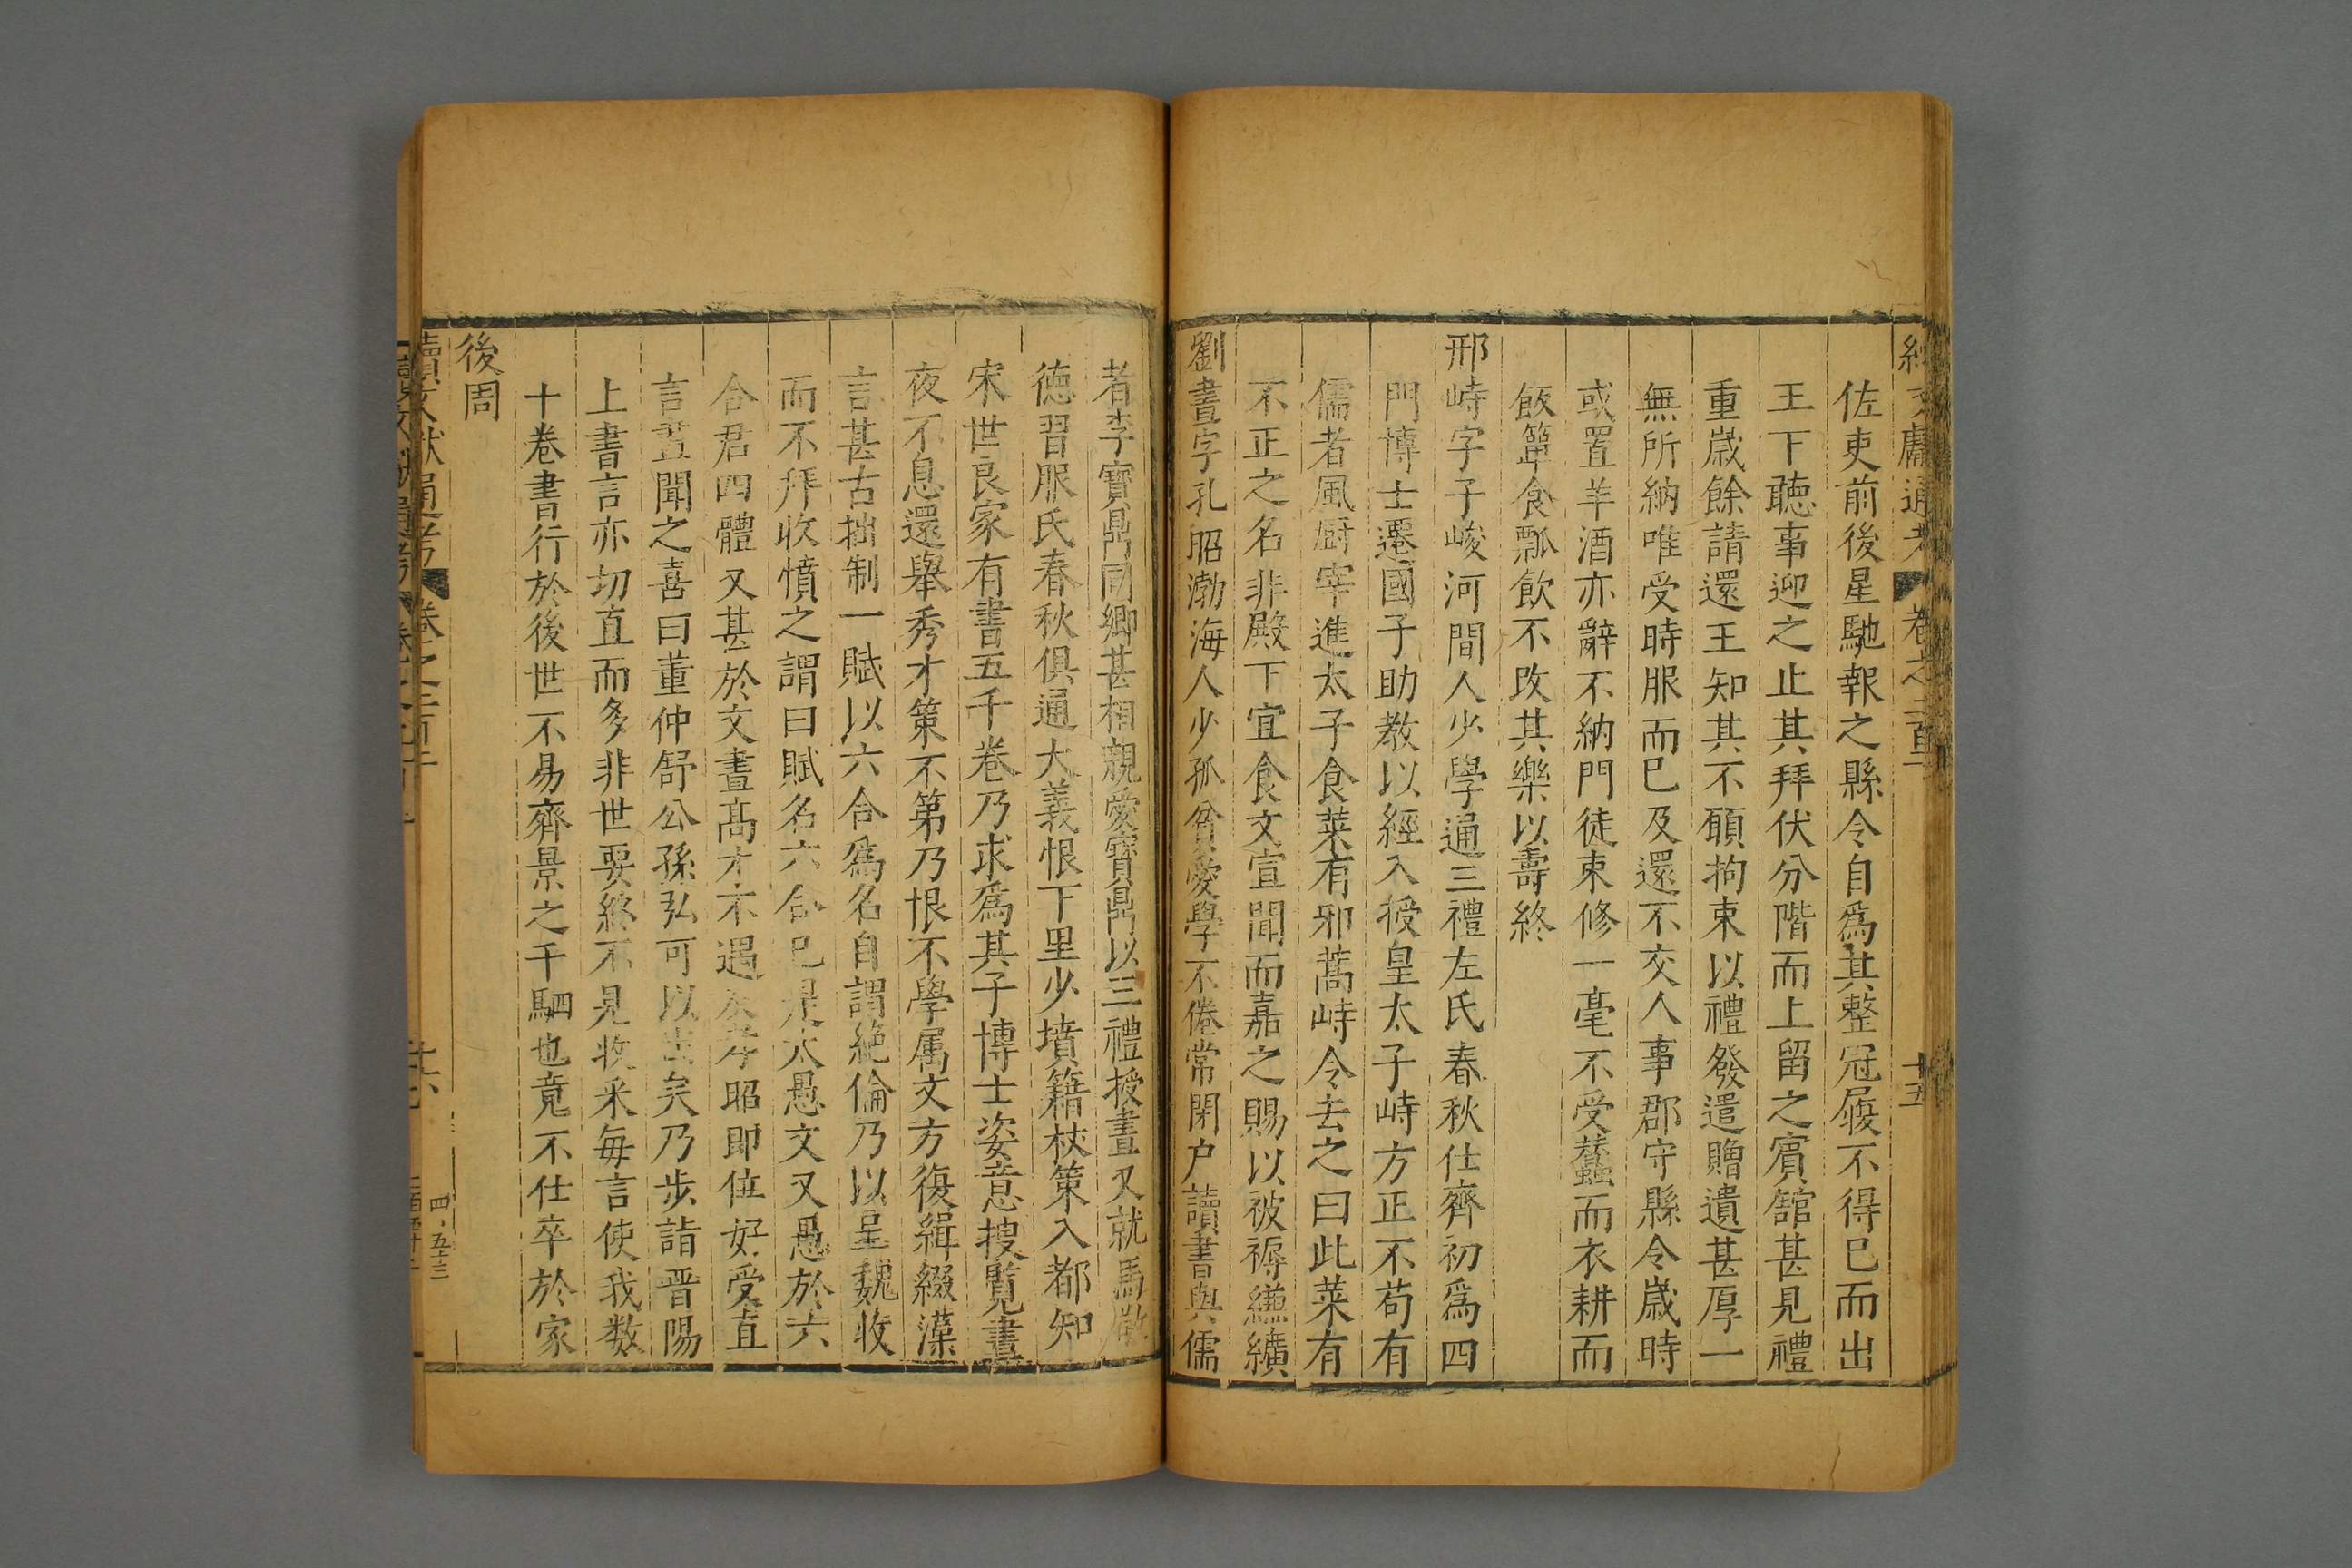 佐吏前後星馳報之縣令自爲其整冠履不得已而出
王下聽事迎之止其拜伏分階而上留之賓舘甚見禮
重歲餘請還王知其不願拘束以禮發遣贈遺甚厚一
無所納唯受時服而已及還不交人事郡守縣令歲時
或置羊酒亦辭不納門徒束修一毫不受蠶而衣耕而
飯簞食瓢飲不改其樂以壽終
邢峙字子峻河間人少學通三禮左氏春秋仕齊初爲四
門博士遷國子助教以經入授皇太子峙方正不苟有
儒者風厨宰進太子食菜有邪蒿峙令去之曰此菜有
不正之名非殿下宜食文宣聞而嘉之賜以被褥縑纊
劉晝字孔昭渤海人少孤貧愛學不倦常閉户讀書與儒
者李寶鼎同鄉甚相親愛寶鼎以三禮授晝又就馬敬
德習服氏春秋俱通大義恨下里少墳籍杖策入都知
宋世良家有書五千卷乃求爲其子博士姿意披覽晝
夜不息還舉秀才策不第乃恨不學属文方復緝綴藻
言甚古拙制一賦以六合爲名自謂絶倫乃以呈魏收
而不拜收憤之謂曰賦名六合已是太愚文又愚於六
合君四體又甚於文晝髙才不遇及孝昭即位好受直
言晝聞之喜曰董仲舒公孫弘可以出矣乃步詣晋陽
上書言亦切直而多非世要終不見收采每言使我数
十卷書行於後世不易齊景之千駟也竟不仕卒於家
後周